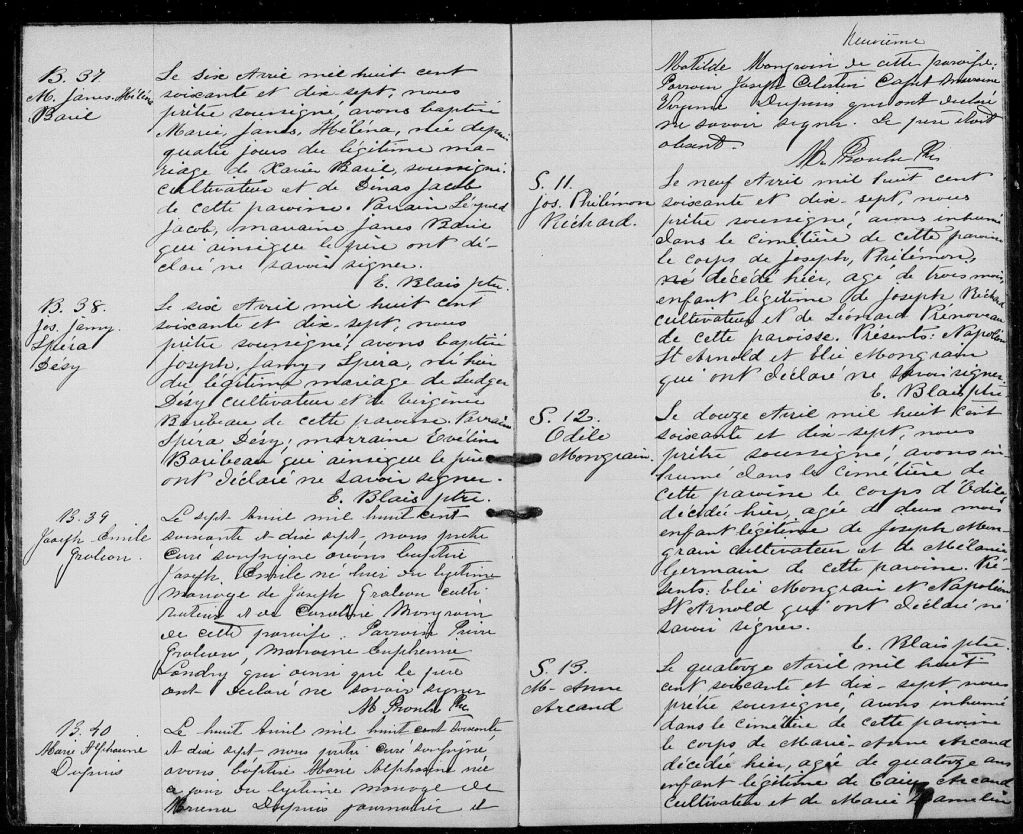 B. 37
M. Janes. Hélèna
Baril
Le six Avril mil huit cent
soixante et dix sept, nous
prêtre soussigné, avons baptisé
Marie, Janes, Héléna, née depuis
quatre jours du légitime ma-
riage de Xavier Baril, soussigné.
cultivateur et de Dinas Jacob
de cette paroisse. Parrain Léopold
Jacob, marraine Janes Barie
qui ainsique le père ont dé-
claré ne savoir signer.
E. Blais ptre.
B. 38.
Jos. Jamy.
Spéra
Désy
Le six Avril mil huit cent
soixante et dix sept, nous
prêtre soussigné, avons baptisé
Joseph, Jamy, Spéra, né hier
du légitime mariage de Ludger
Désy cultivateur et de Virginie
Baribeau de cette paroisse. Parrain
Spéra Désy, marraine Eveline
Baribeau qui ainsique le père
ont déclaré ne savoir signer.
E. Blais ptre.
B. 39
Joseph Emile
Groleau.
Le sept Avril mil huit cent
soixante et dix sept nous prêtre
curé soussigné avons baptisé
Joseph Emile né hier du légitime
mariage de Joseph Groleau culti-
vateur et de Caroline Mongrain
de cette paroisse. Parrain Pierre
Groleau, marraine Euphenne
Landry qui ainsi que le père
ont déclaré ne savoir signer
M Proulx Ptre
B. 40
Marie Alphonsine
Dupuis
Le huit Avril mil huit cent soixante
et dix sept nous prêtre curé soussigné,
avons baptisé Marie Alphonsine née
ce jour du légitime mariage de
Dupuis journalier et
Neuvième
Matilde Mongrain de cette paroisse.
Parrain Joseph Célestin marraine
Virginie Dupuis qui ont déclaré
ne savoir signer. Le père était
absent.
M. Proulx Ptre
S. 11.
Jos. Philémon
Richard.
Le neuf Avril mil huit cent
soixante et dix-sept, nous
prêtre soussigné, avons inhumé
dans le cimetière de cette paroisse
le corps de Joseph, Philémon,
né décédé hier, agé de trois mois,
enfant légitime de Joseph Richard
cultivateur et de Léonard Prénoveau
de cette paroisse. Présents: Napoléon
St Arnold et Elié Mongrain
qui ont déclaré ne savoir signer
E. Blais ptre.
S. 12.
Odile
Mongrain.
Le douze Avril mil huit cent
soixante et dix-sept, nous
prêtre soussigné, avons in-
humé dans le cimétière de
cette paroisse le corps d'Odile
décédée hier, agée de deux mois
enfant légitime de Joseph Mon-
grain cultivateur et de Mélanie
Germain de cette paroisse. Pré-
sents: Elié Mongrain et Napoléon
St Arnold qui ont déclaré ne
savoir signer.
E. Blais ptre.
S. 13
M- Anne
Arcand
Le quatorze Avril mil huit
cent soixante et dix-sept nous
prêtre soussigné, avons inhumé
dans le cimetière de cette paroisse
le corps de Marie-Anne Arcand
décédée hier, agée de quatorze ans
enfant légitime de Arcand
cultivateur et de Marie Hamelin